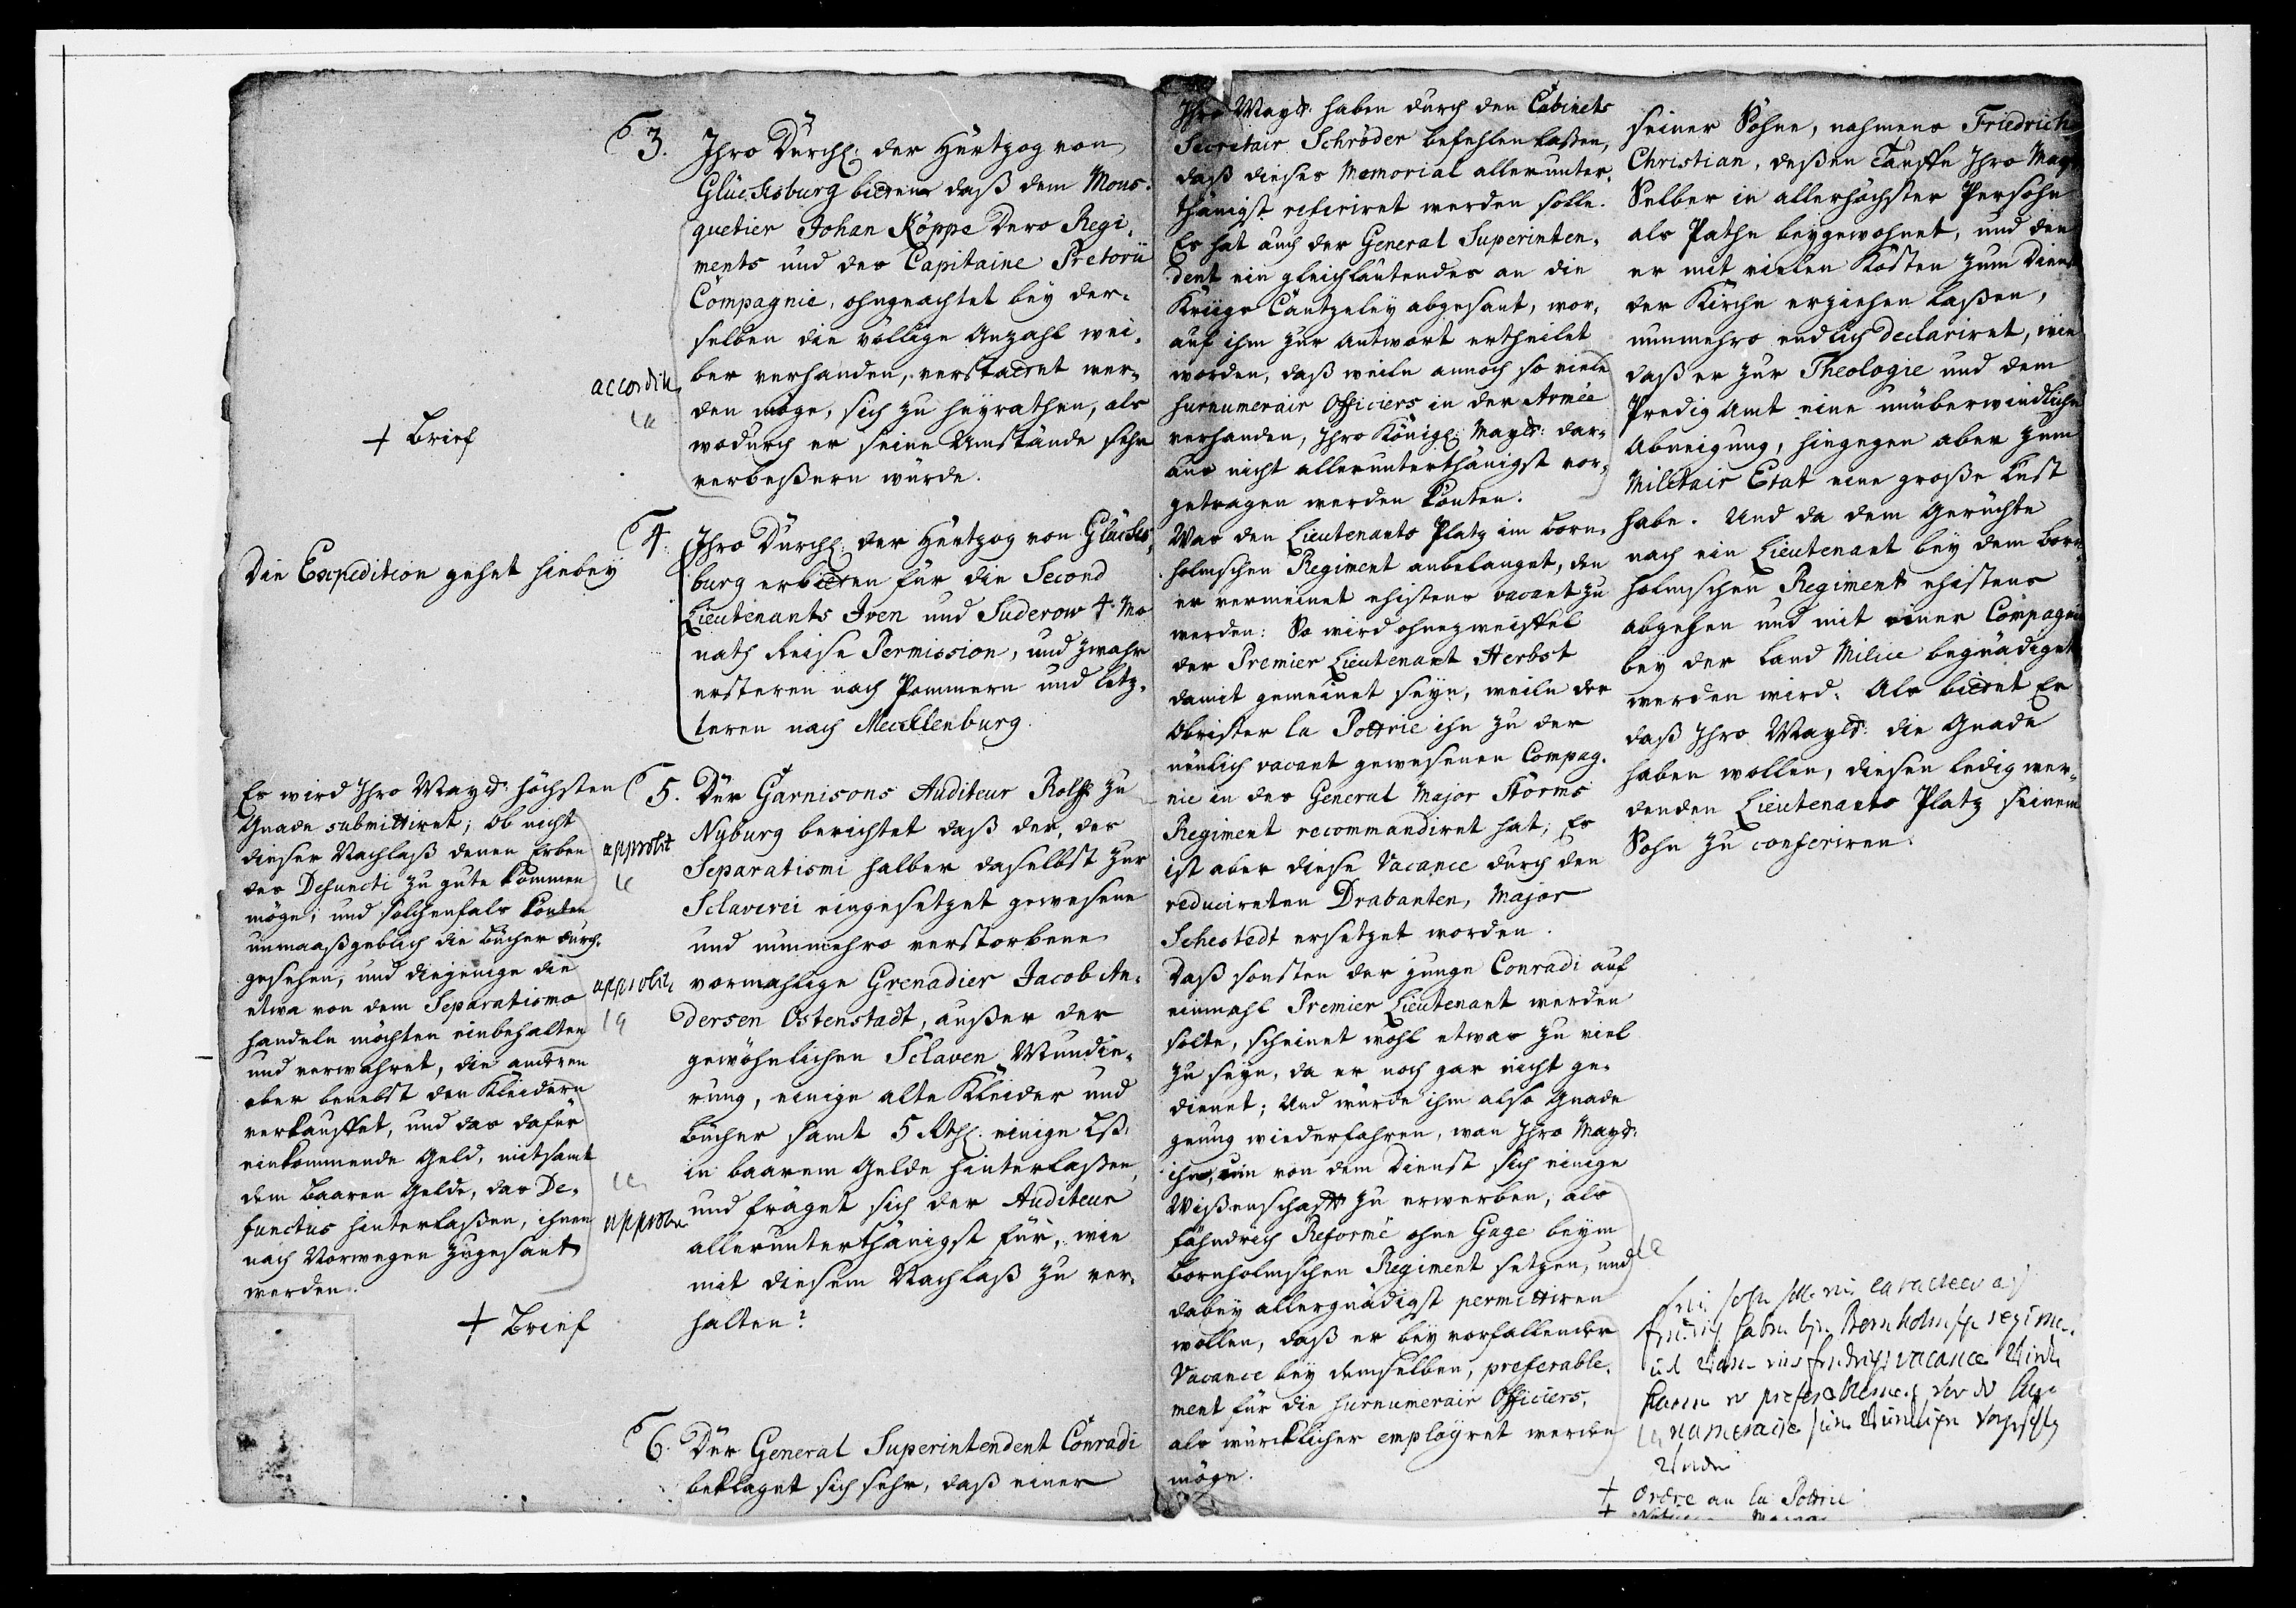 3. Ihro Dürchl: der Hertzog von
Glücksburg bitten daß dem Mous-
quetier Johan Köppe Dero Regi-
ments und des Capitaine Pretorii
Compagnie, ohngeachtet bey der-
selben die völlige Anzahl Wei-
ber verhanden, verstattet wer-
den möge, sich zu heyrathen, als
wodurch er seine Umstände sehr
verbeßern würde.
+ Brief
4. Ihro Dürchl: der Hertzog von Glücks-
burg erbitten für die Second
Lieutenants Iven und Suderow 4. Mo
nath Reise Permission, und zwahr
ersteren nach Pommern und letz-
teren nach Mecklenburg.
Die Expedition gehet hiebey
5. Der Garnisons Auditeur Rolfs zu
Nyburg berichtet daß der, des
Separatismi halber daselbst zur
Sclaverei eingesetzet gewesene
und nunmehro verstorbene
vormahlige Grenadier Jacob An-
dersen Ostenstadt, außer der
gewöhnlichen Sclaven Mundie-
rung, einige alte Kleider und
Bücher samt 5 Rthl: einige ßß:
in baarem Gelde hinterlaßen,
und fräget sich der Auditeur
allerunterthänigst für, wie
mit diesem Nachlaß zu ver-
halten?
Es wird Ihro Mayts: höchsten
Gnade submittiret; ob nicht
dieser Nachlaß denen Erben
des Defuncti zu gute kommen
möge; und solchenfals könten
unmaaßgeblich die Bücher durch-
gesehen, und diejenige die
etwa von dem Separatismo
handeln möchten einbehalten
und verwahret, die andren
aber benebst den Kleidern
verkauffet, und das dafür
einkommende Geld, mitsamt
dem baaren Gelde, das De-
functus hinterlaßen, ihnen
nach Norwegen zugesant
werden.
approbit
+ Brief
6. Der General Superintendent Conradi
beklaget sich sehr, daß einer
seiner Söhne, nahmens Friedrich
Christian, deßen Tauffe Ihro Mayt
Selber in allerhöchster Persohn
als Pathe beygewohnet, und den
er mit vielen Kosten zum Dienst
der Kirche erziehen laßen,
nunmehro endlich declariret, wie
daß er zur Theologie und dem
Predig Amt eine unüberwindliche
Abneigung, hingegen aber zum
Militair Etat eine große Lust
habe. Und da dem Gerüchte
nach ein Lieutenant bey dem Born-
holmschen Regiment ehistens
abgehen und mit einer Compagnie
bey der Land Milice begnädiget
werden wird: Als bittet Er
daß Ihro Mayts: die Gnade
haben wollen, diesen ledig wer-
denden Lieutenants Platz seinem
Sohn zu conferiren.
Ihro Mayts: haben durch den Cabinets
Secretair Schröder befehlen laßen,
daß dieses Memorial allerunter-
thänigst referiret werden solle.
Es hat auch der General Superinten-
dent ein gleichlautendes an die
Kriigs Cantzeley abgesant, wor-
auf ihm zur Antwort ertheilet
worden, daß weiln annoch so viele
surnumerair Officiers in der Armée
verhanden, Ihro Königl: Mayts: dar-
aus nicht allerunterthänigst vor-
getragen werden könten.
Was den Lieutenants Platz im Born-
holmschen Regiment anbelanget, den
er vermeinet ehistens vacant zu
werden: So wird ohnezweiffel
der Premier Lieutenant Herbst
damit gemeinet seyn, weiln der
Obrister la Pottrie ihn zu der
neulich vacant gewesenen Compag-
nie in des General Major Storms
Regiment recommandiret hat; Es
ist aber diese Vacance durch den
reducireten Drabanten, Major
Sehestedt ersetzet worden.
Daß sonsten der junge Conradi auf
einmahl Premier Lieutenant werden
solte, scheinet wohl etwas zu viel
zu seyn, da er noch gar nicht ge-
dienet; Und würde ihm also Gnade
genug wiederfahren, wan Ihro Mayts:
ihn, um von dem Dienst sich einige
Wißenschafft zu erwerben, als
Fähndrich Reformé ohne Gage beym
Bornholmschen Regiment setzen, und
dabey allergnädigst permittiren
wollen, daß er bey vorfallender
Vacance bey demselben, preferable-
ment für die surnumerair Officiers,
als würcklicher employret werden
möge.
+ Ordre an la Pottrie